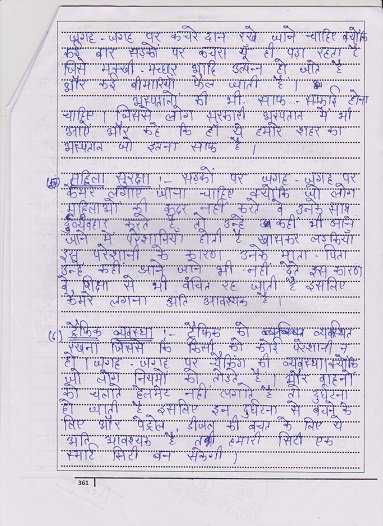 जगह-जगह पर कचरे दान रखे जाने चाहिए क्योंकि
कई बार सडकों पर कचरा यूँ ही पड़ा रहता है
जिसे मक्खी-मच्छर आदि उत्पन्न हो जाते है
और कई बीमारियाँ फैल जाती है।
अस्पतालो की भी साफ-सफाई होना
चाहिए। जिससे लोग सरकारी अस्पताल में भी
जाएं और कहे कि हाँ ये हमारे शहर का
अस्पताल जो इतना साफ है।
महिला सुरक्षा :- सडकों पर जगह-जगह पर
केमरे लगाए जाना चाहिए क्योकि जो लोग
महिलाओ की कदर नहीं करते वे उनके साथ
दुर्व्यवहार करते है तो उन्हे कही भी आने
जाने में परेशानिया होती है खासकर लडकिया
इस परेशानी के कारण उनके माता-पिता
उन्हे कही आने जाने भी नही देते इस कारण
वे शिक्षा से भी वंचित रह जाती है इसलिए
केमेरे लगना अति आवश्यक है।
(८) ट्रैफिक व्यवस्था :- ट्रैफिक को व्यवस्थित
रखना जिससे कि किसी को कोई परेशानी न
हो। जगह-जगह पर चैकिंग की व्यवस्था क्योंकि
जो लोग नियमों को तोडते है और वाहनो
को चलाते हेलमेट नही लगाते है तो दुर्घटना
हो जाती है इसलिए इन दुर्घटना से बचने के
लिए और पेट्रोल, डीजल की बचत के लिए ये
अति आवश्यक है तभी हमारी सिटी एक
स्मार्ट सिटी बन सकेगी।
361